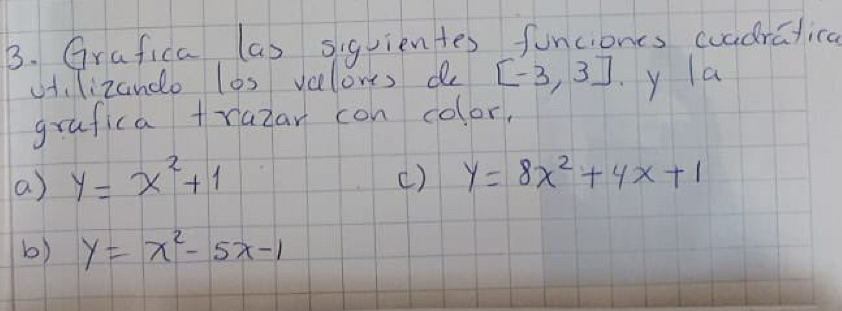 3. Grafica las siguientes funciones cuadrática
utilizando los valores de [-3, 3]. y la
grafica trazar con color.
a) y = x² + 1 c) y = 8x² + 4x + 1
b) y = x² - 5x - 1